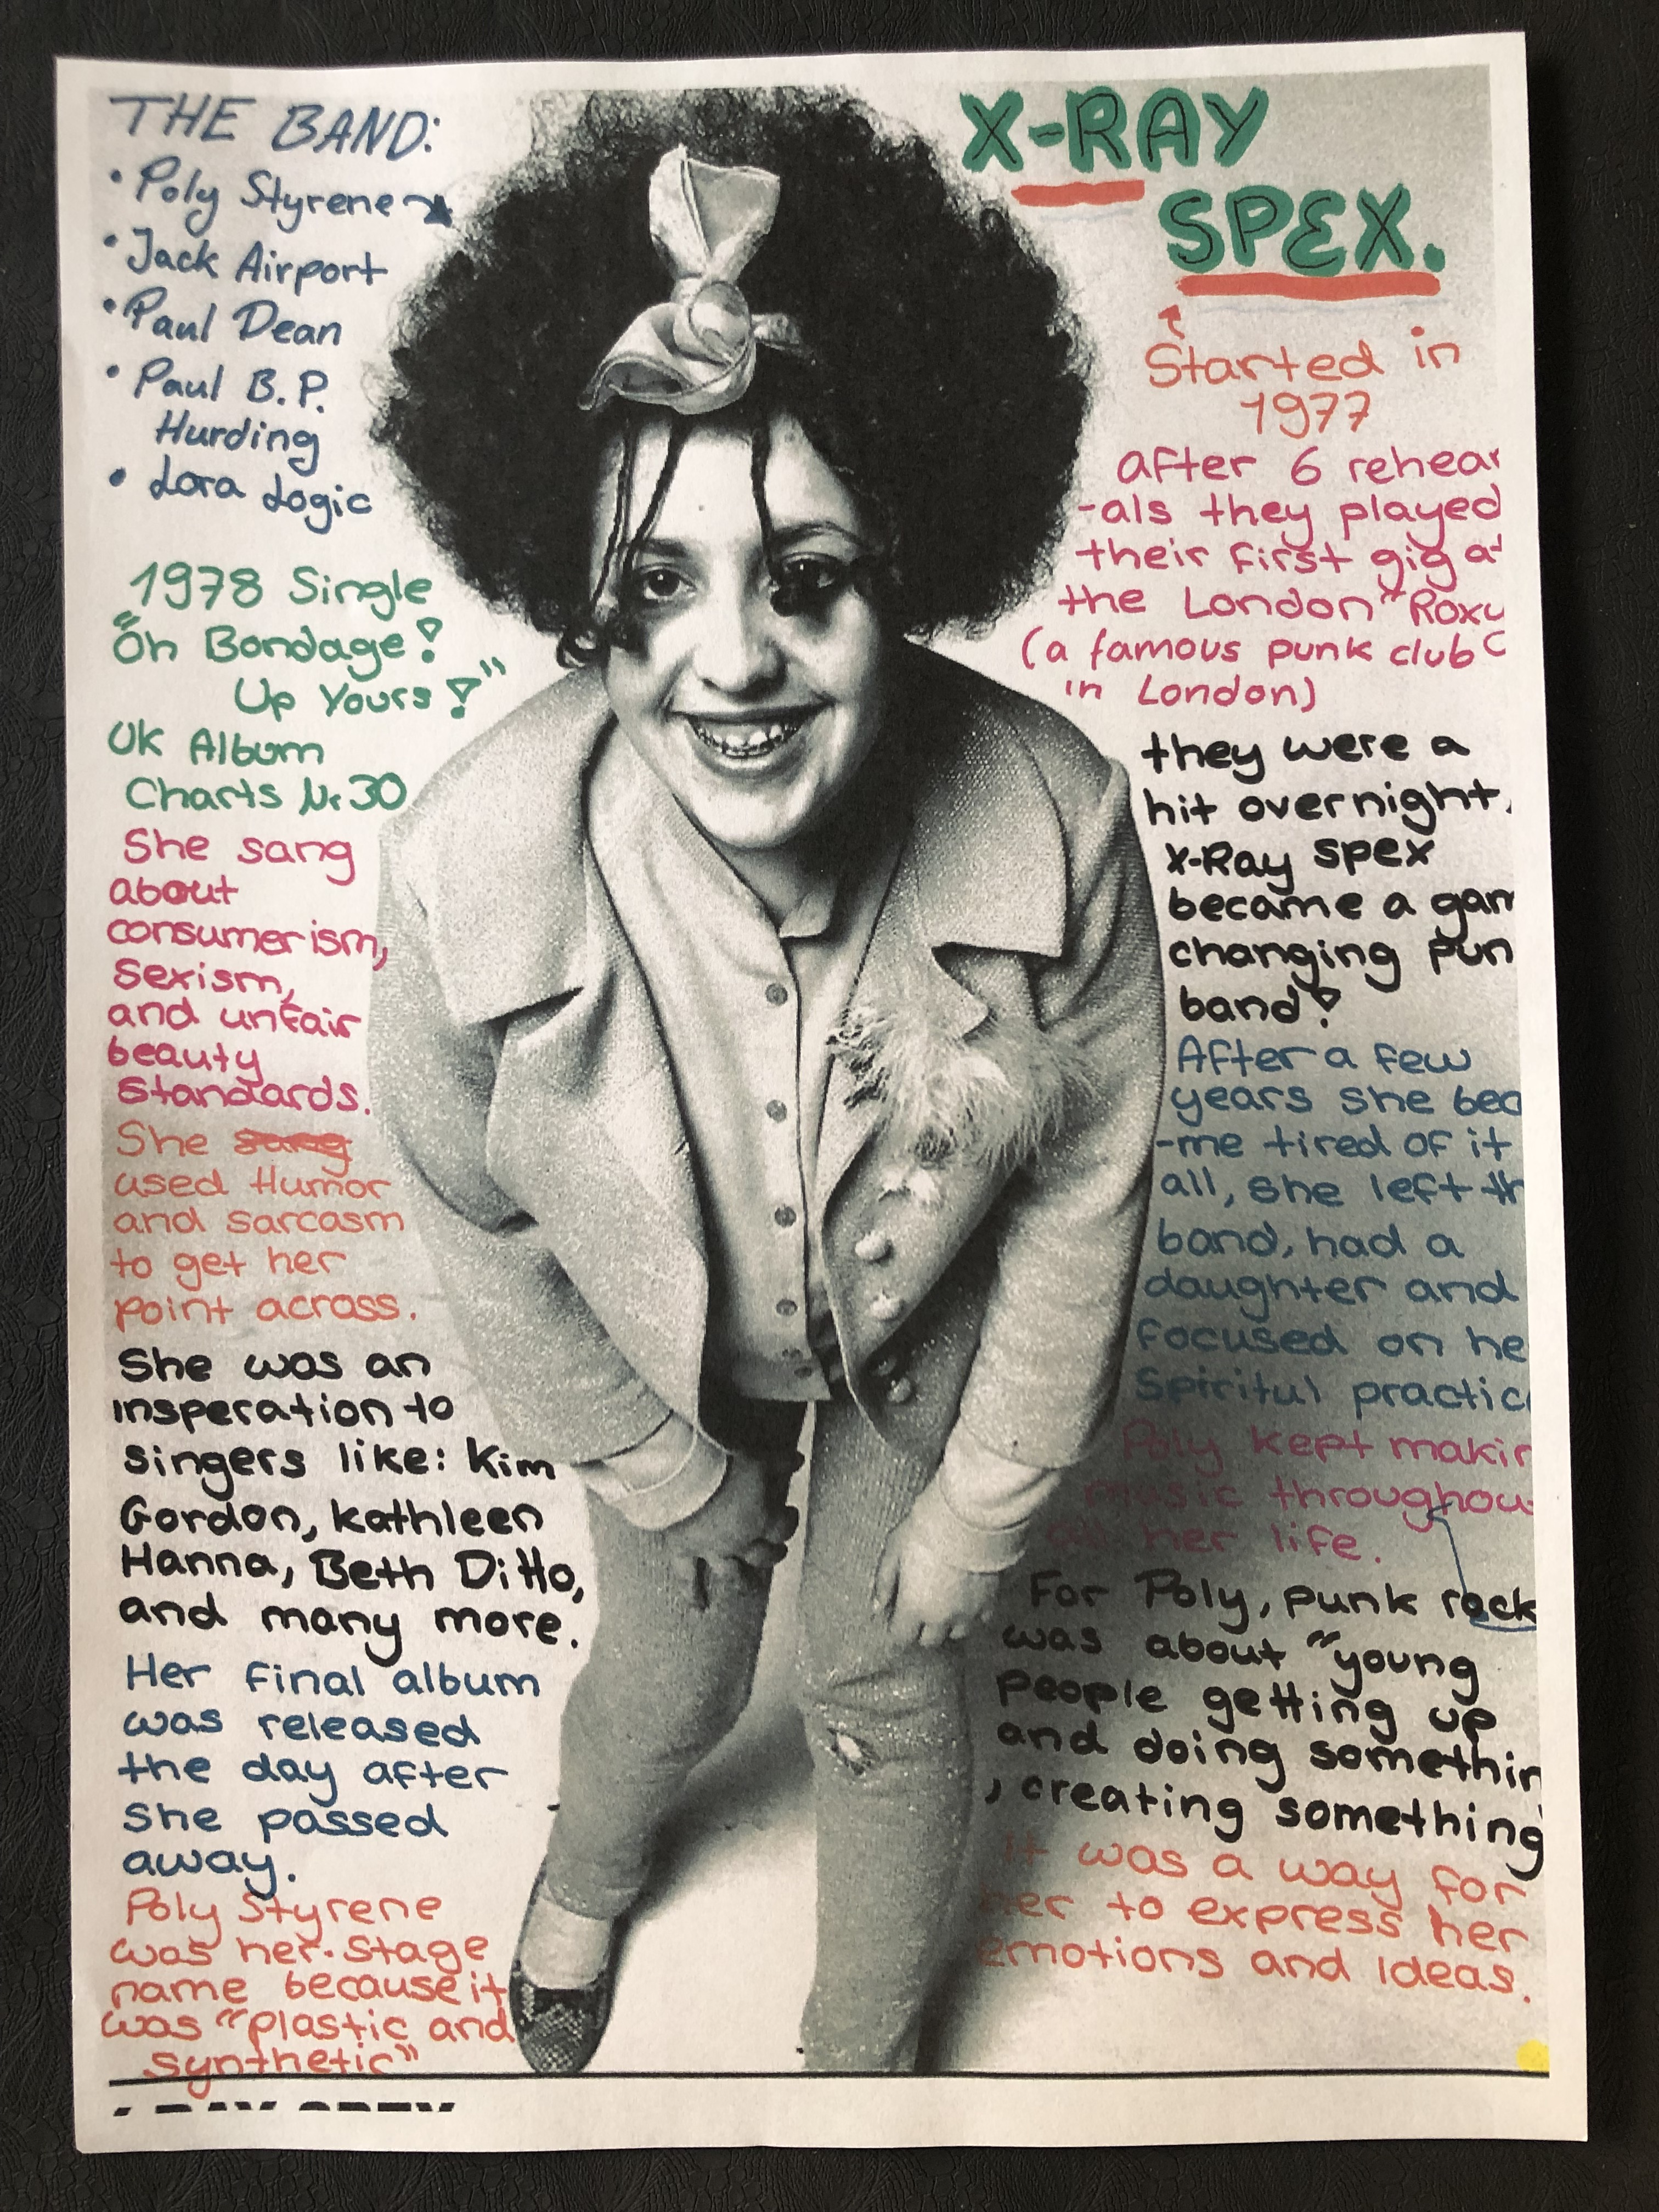 THE BAND:
• Poly Styrene
• Jack Airport
• Paul Dean
• Paul B.P.
Hurding
• Lora Logic
1978 Single
"Oh Bondage!
Up Yours!"
UK Album
Charts Nr 30
She sang
about
consumerism,
sexism,
and unfair
beauty
standards.
She sang
used Humor
and sarcasm
to get her
point across.
She was an
insperation to
singers like: Kim
Gordon, Kathleen
Hanna, Beth Ditto,
and many more.
Her final album
was released
the day after
she passed
away.
Poly Styrene
was her stage
name because it
was "plastic and
synthetic"
X-RAY
SPEX.
Started in
1977
after 6 rehear
-als they played
their first gig at
the London "Roxy
(a famous punk club
in London)
they were a
hit overnight.
X-Ray Spex
became a gam
changing pun
band!
After a few
years she bec
-me tired of it
all, she left th
band, had a
daughter and
focused on he
Spiritul practic
Poly kept makin
music throughou
all her life.
For Poly, punk rock
was about "young
people getting up
and doing somethin
, creating something
It was a way for
her to express her
emotions and ideas.